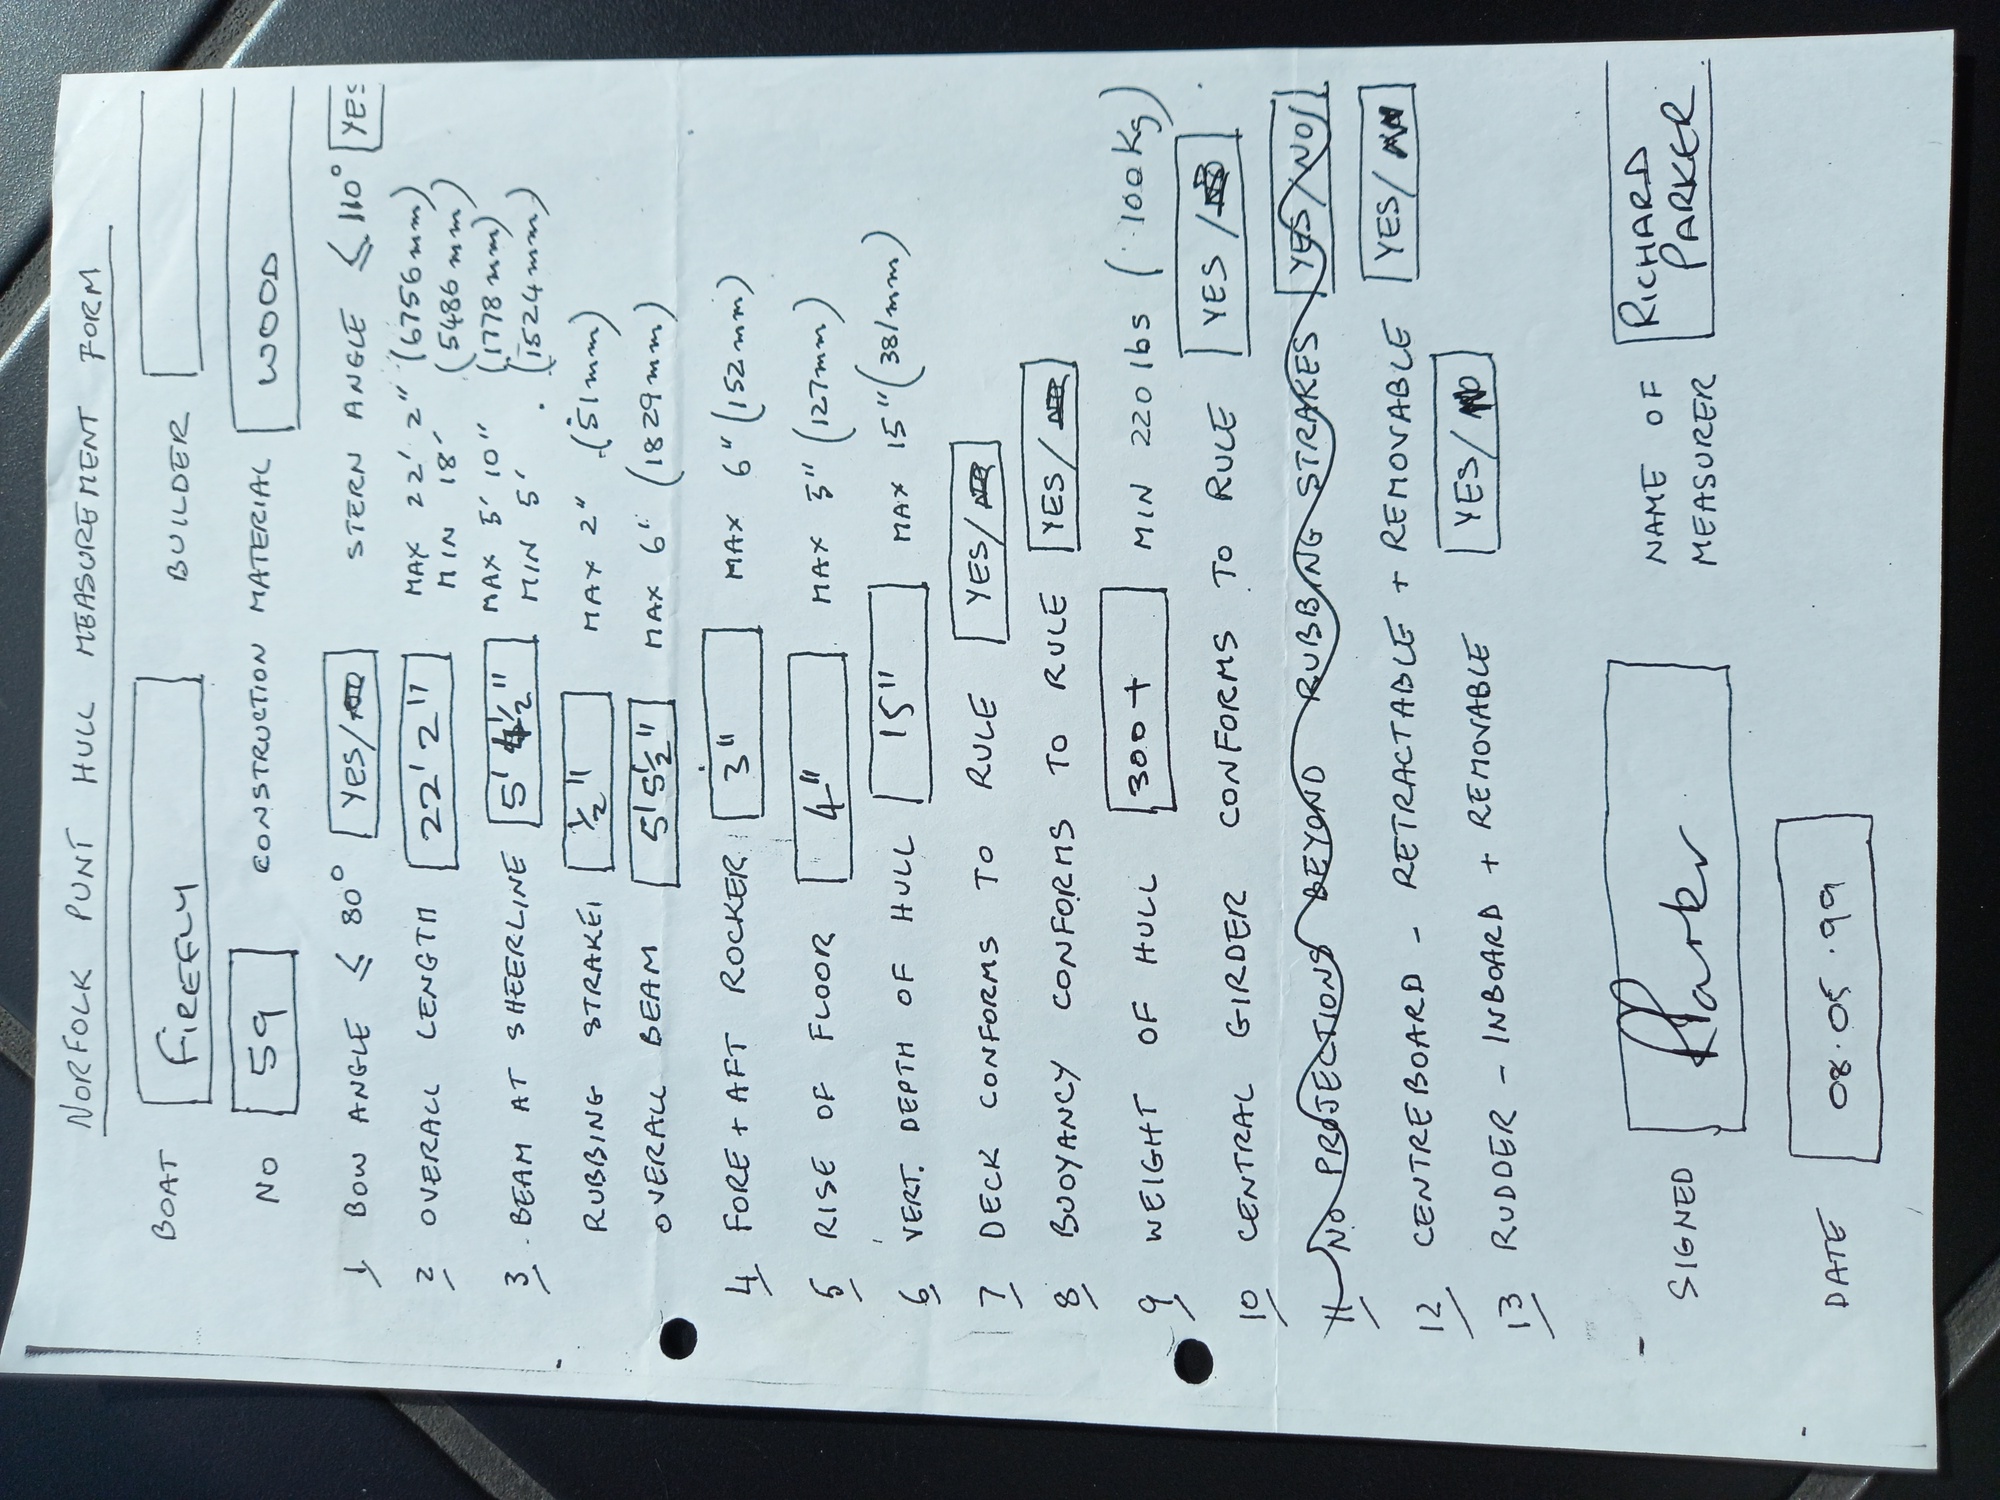 NORFOLK PUNT HULL MEASUREMENT FORM
BOAT FIREFLY BUILDER
NO 59 CONSTRUCTION MATERIAL WOOD
1 BOW ANGLE ≤ 80° YES/NO STERN ANGLE ≤ 110° YES
2 OVERALL LENGTH 22' 2" MAX 22' 2" (6756mm)
MIN 18' (5486mm)
3 BEAM AT SHEERLINE 5' 4½" MAX 5' 10" (1778mm)
MIN 5' (1524mm)
RUBBING STRAKE ½" MAX 2" (51mm)
OVERALL BEAM 5'5½" MAX 6' (1829mm)
4 FORE + AFT ROCKER 3" MAX 6" (152mm)
5 RISE OF FLOOR 4" MAX 5" (127mm)
6 VERT. DEPTH OF HULL 15" MAX 15" (381mm)
7 DECK CONFORMS TO RULE YES/NO
8 BUOYANCY CONFORMS TO RULE YES/NO
9 WEIGHT OF HULL 300+ MIN 220 lbs (100Kg)
10 CENTRAL GIRDER CONFORMS TO RULE YES/NO
11 NO PROJECTIONS BEYOND RUBBING STRAKES YES/NO
12 CENTREBOARD - RETRACTABLE + REMOVABLE YES/
13 RUDDER - INBOARD + REMOVABLE YES/NO
SIGNED RParker NAME OF MEASURER RICHARD PARKER
DATE 08.05.99